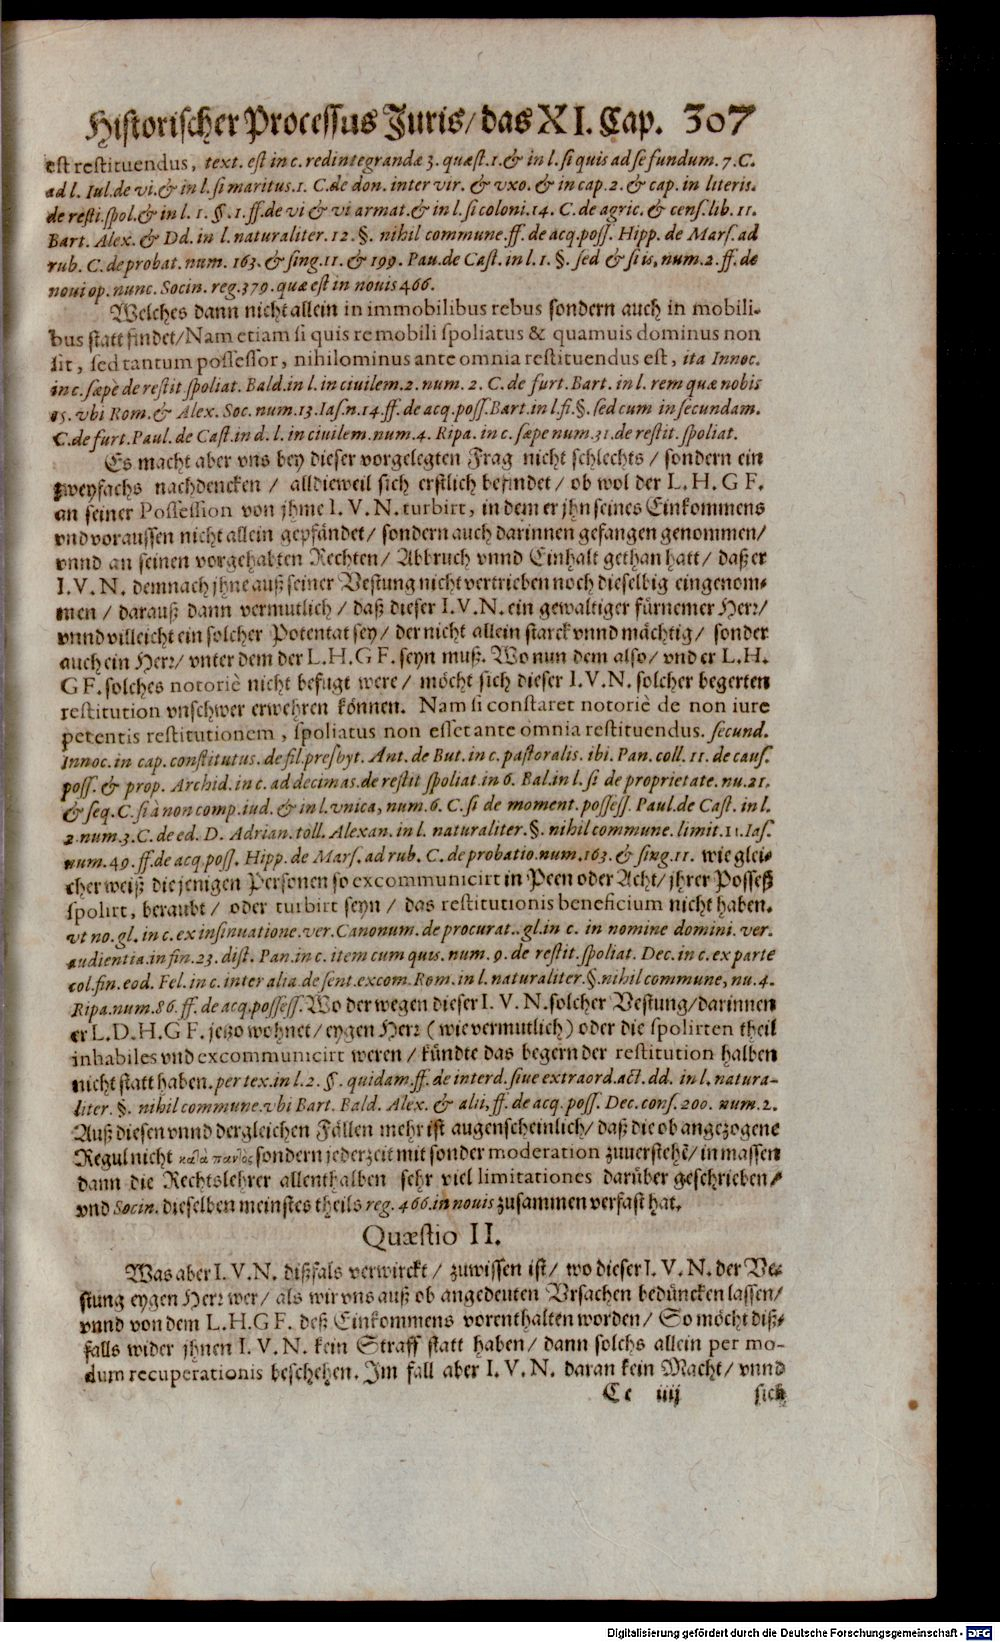 Historischer Processus Juris/ das XI. Cap. 307
est restituendus, text. est in c. redintegrandæ 3. quæst. 1. & in l. si quis ad se fundum. 7. C.
ad l. Iul. de vi. & in l. si maritus. 1. C. de don. inter vir. & vxo. & in cap. 2. & cap. in literis.
de resti. spol. & in l. 1. §. 1. ff. de vi & vi armat. & in l. si coloni. 14. C. de agric. & cens. lib. 11.
Bart. Alex. & Dd. in l. naturaliter. 12. §. nihil commune. ff. de acq. poss. Hipp. de Mars. ad
rub. C. de probat. num. 163. & sing. 11. & 199. Pau. de Cast. in l. 1. §. sed & si is, num. 2. ff. de
noui op. nunc. Socin. reg. 379. quæ est in nouis 466.
Welches dann nicht allein in immobilibus rebus sondern auch in mobili-
bus statt findet/ Nam etiam si quis re mobili spoliatus & quamuis dominus non
sit, sed tantum possessor, nihilominus ante omnia restituendus est, ita Innoc.
in c. sæpè de restit spoliat. Bald. in l. in ciuilem. 2. num. 2. C. de furt. Bart. in l. rem quæ nobis
15. vbi Rom. & Alex. Soc. num. 13. Ias. n. 14. ff. de acq. poss. Bart. in l. fi. §. sed cum in secundam.
C. de furt. Paul. de Cast. in d. l. in ciuilem. num. 4. Ripa. in c. sæpe num. 31. de restit. spoliat.
Es macht aber vns bey dieser vorgelegten Frag nicht schlechts/ sondern ein
zweyfachs nachdencken/ alldieweil sich erstlich befindet/ ob wol der L. H. G F.
an seiner Possession von jhme I. V. N. turbirt, in dem er jhn seines Einkommens
vnd voraussen nicht allein gepfändet/ sondern auch darinnen gefangen genommen/
vnnd an seinen vorgehabten Rechten/ Abbruch vnnd Einhalt gethan hatt/ daß er
I. V. N. demnach jhne auß seiner Vestung nicht vertrieben noch dieselbig eingenom-
men/ darauß dann vermutlich/ daß dieser I. V. N. ein gewaltiger fürnemer Herr/
vnnd villeicht ein solcher Potentat sey/ der nicht allein starck vnnd mächtig/ sonder
auch ein Herr/ vnter dem der L. H. G F. seyn muß. Wo nun dem also/ vnd er L. H.
G F. solches notoriè nicht befugt were/ möcht sich dieser I. V. N. solcher begerten
restitution vnschwer erwehren können. Nam si constaret notoriè de non iure
petentis restitutionem, spoliatus non esset ante omnia restituendus. secund.
Innoc. in cap. constitutus. de fil. presbyt. Ant. de But. in c. pastoralis. ibi. Pan. coll. 11. de caus.
poss. & prop. Archid. in c. ad decimas. de restit spoliat. in 6. Bal. in l. si de proprietate. nu. 21.
& seq. C. si à non comp. iud. & in l. vnica, num. 6. C. si de moment. possess. Paul. de Cast. in l.
2. num. 3. C. de ed. D. Adrian. toll. Alexan. in l. naturaliter. §. nihil commune. limit. 11. Ias.
num. 49. ff. de acq. poss. Hipp. de Mars. ad rub. C. de probatio. num. 163. & sing. 11. wie glei-
cher weiß die jenigen Personen so excommunicirt in Peen oder Acht/ jhrer Possess
spolirt, beraubt/ oder turbirt seyn/ das restitutionis beneficium nicht haben.
vt no. gl. in c. ex insinuatione. ver. Canonum. de procurat.. gl. in c. in nomine domini. ver.
audientia. in fin. 23. dist. Pan. in c. item cum quis. num. 9. de restit. spoliat. Dec. in c. ex parte
col. fin. eod. Fel. in c. inter alia de sent. excom. Rom. in l. naturaliter. §. nihil commune, nu. 4.
Ripa. num. 86. ff. de acq. possess. Wo der wegen dieser I. V. N. solcher Vestung/ darinnen
er L. D. H. G F. jetzo wohnet/ eygen Herr (wie vermutlich) oder die spolirten theil
inhabiles vnd excommunicirt weren/ kündte das begern der restitution halben
nicht statt haben. per tex. in l. 2. §. quidam. ff. de interd. siue extraord. act. dd. in l. natura-
liter. §. nihil commune. vbi Bart. Bald. Alex. & alii, ff. de acq. poss. Dec. cons. 200. num. 2.
Auß diesen vnnd dergleichen Fällen mehr ist augenscheinlich/ daß die ob angezogene
Regul nicht κατὰ παντὸς sondern jederzeit mit sonder moderation zuuerstehẽ/ in massen
dann die Rechtslehrer allenthalben sehr viel limitationes darüber geschrieben/
vnd Socin. dieselben meinstes theils reg. 466. in nouis zusammen verfast hat.
Quæstio II.
Was aber I. V. N. dißfals verwirckt/ zuwissen ist/ wo dieser I. V. N. der Ve-
stung eygen Herr wer/ als wir vns auß ob angedeuten Vrsachen bedüncken lassen/
vnnd von dem L. H. G F. deß Einkommens vorenthalten worden/ So möcht diß-
falls wider jhnen I. V. N. kein Straff statt haben/ dann solchs allein per mo-
dum recuperationis beschehen. Im fall aber I. V. N. daran kein Macht/ vnnd
Cc iiij sich
Digitalisierung gefördert durch die Deutsche Forschungsgemeinschaft - DFG